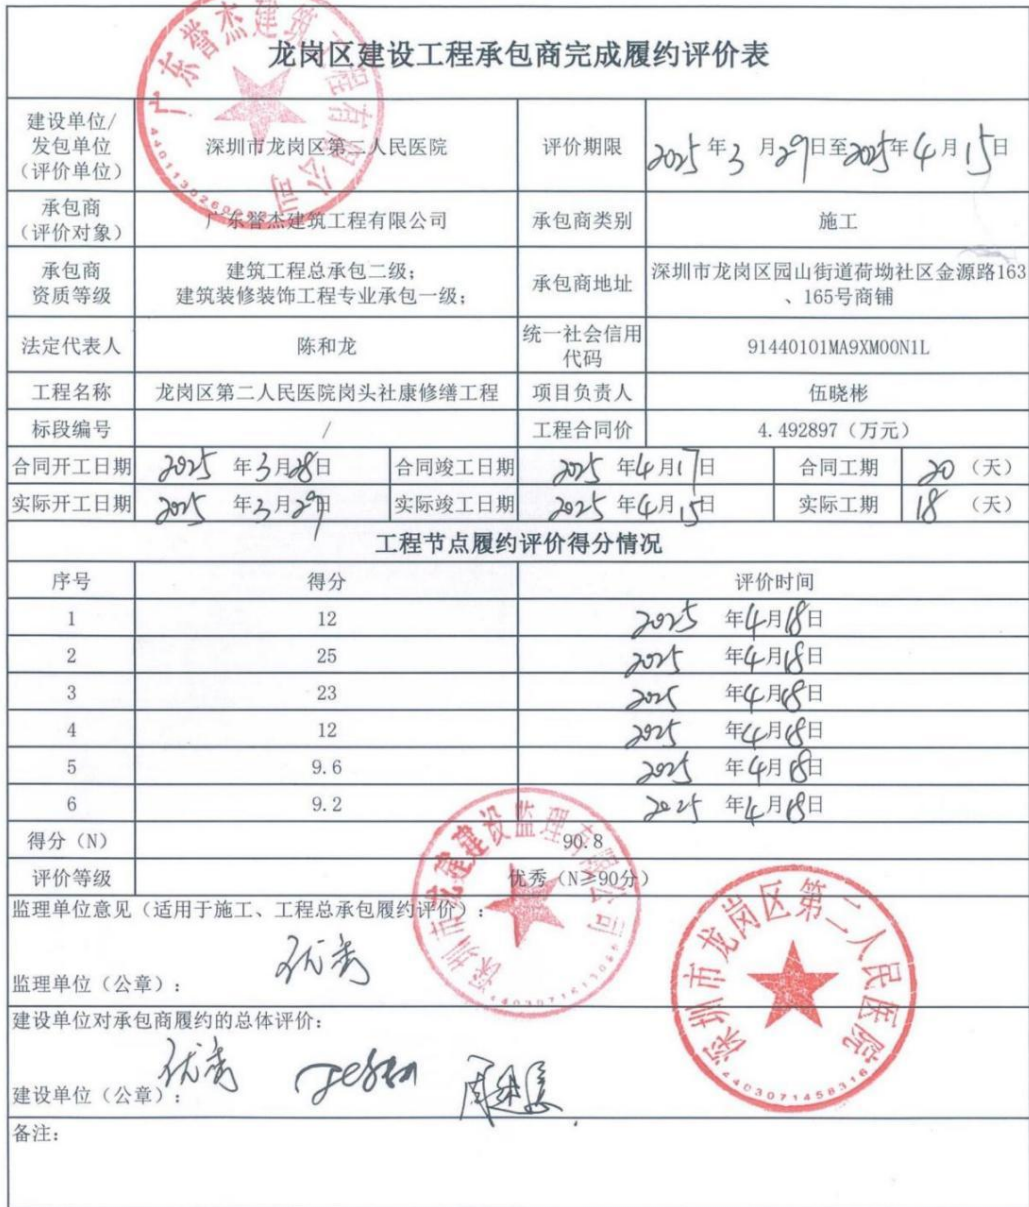 龙岗区建设工程承包商完成履约评价表
建设单位/
发包单位
（评价单位）
深圳市龙岗区第二人民医院
评价期限
2025年3月29日至2025年4月15日
承包商
（评价对象）
广东誉杰建筑工程有限公司
承包商类别
施工
承包商
资质等级
建筑工程总承包二级；
建筑装修装饰工程专业承包一级；
承包商地址
深圳市龙岗区园山街道荷坳社区金源路163
、165号商铺
法定代表人
陈和龙
统一社会信用
代码
91440101MA9XM00N1L
工程名称
龙岗区第二人民医院岗头社康修缮工程
项目负责人
伍晓彬
标段编号
/
工程合同价
4.492897（万元）
合同开工日期
2025年3月28日
合同竣工日期
2025年4月17日
合同工期
20（天）
实际开工日期
2025年3月29日
实际竣工日期
2025年4月15日
实际工期
18（天）
工程节点履约评价得分情况
序号 得分 评价时间
1 12 2025年4月18日
2 25 2025年4月18日
3 23 2025年4月18日
4 12 2025年4月18日
5 9.6 2025年4月18日
6 9.2 2025年4月18日
得分（N） 90.8
评价等级 优秀（N≥90分）
监理单位意见（适用于施工、工程总承包履约评价）：
优秀
监理单位（公章）：
建设单位对承包商履约的总体评价：
优秀
建设单位（公章）：
备注：
广东誉杰建筑工程有限公司
建设监理有限公司
深圳市龙岗区第二人民医院
4403071458316